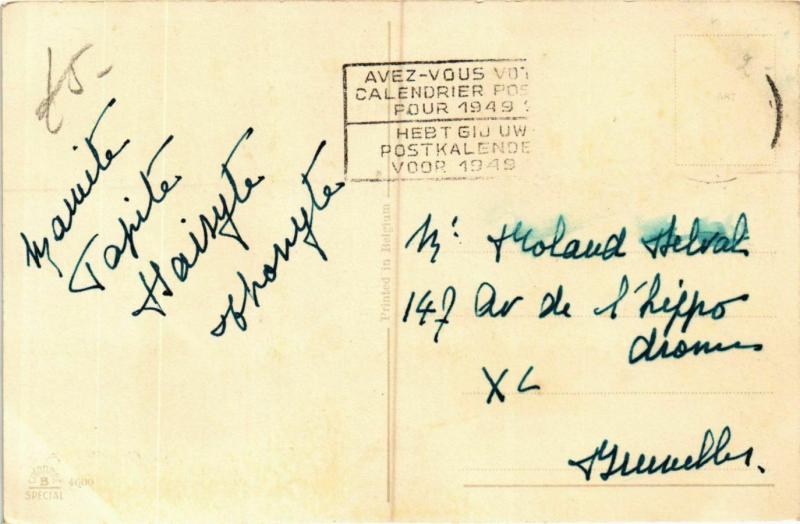 £5-
AVEZ-VOUS VOT
CALENDRIER POS
POUR 1949 ?
HEBT GIJ UW
POSTKALENDE
VOOR 1949
Mamite
Papite
Printed in Belgium
Mr Roland Delval
147 Av de l'hippo
dromes
XL
Bruxelles.
B
SPECIAL
4600